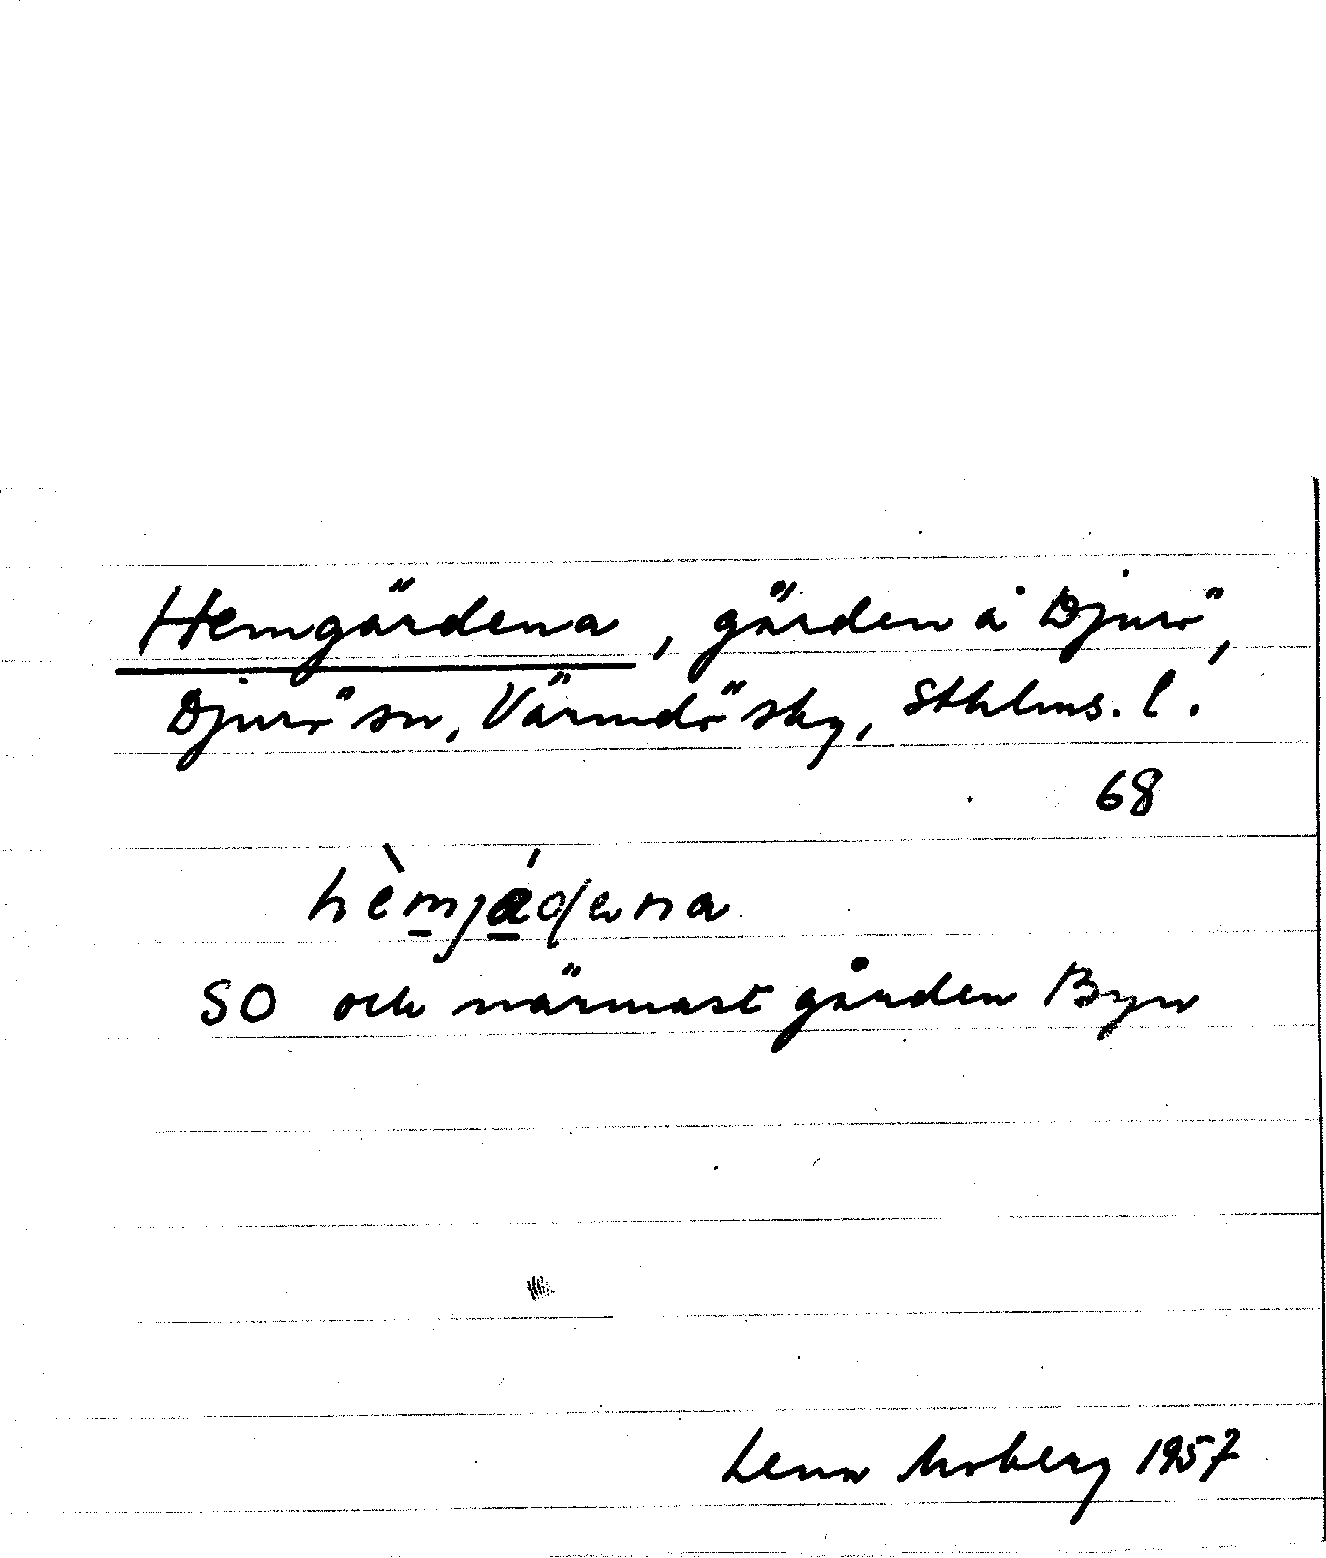 Hemgärdena, gärden å Djurö,
Djurö sn, Värmdö skg, Sthlms. l.
68
hèmjǽḍena
SO och närmast gården Byn
Lena Moberg 1957